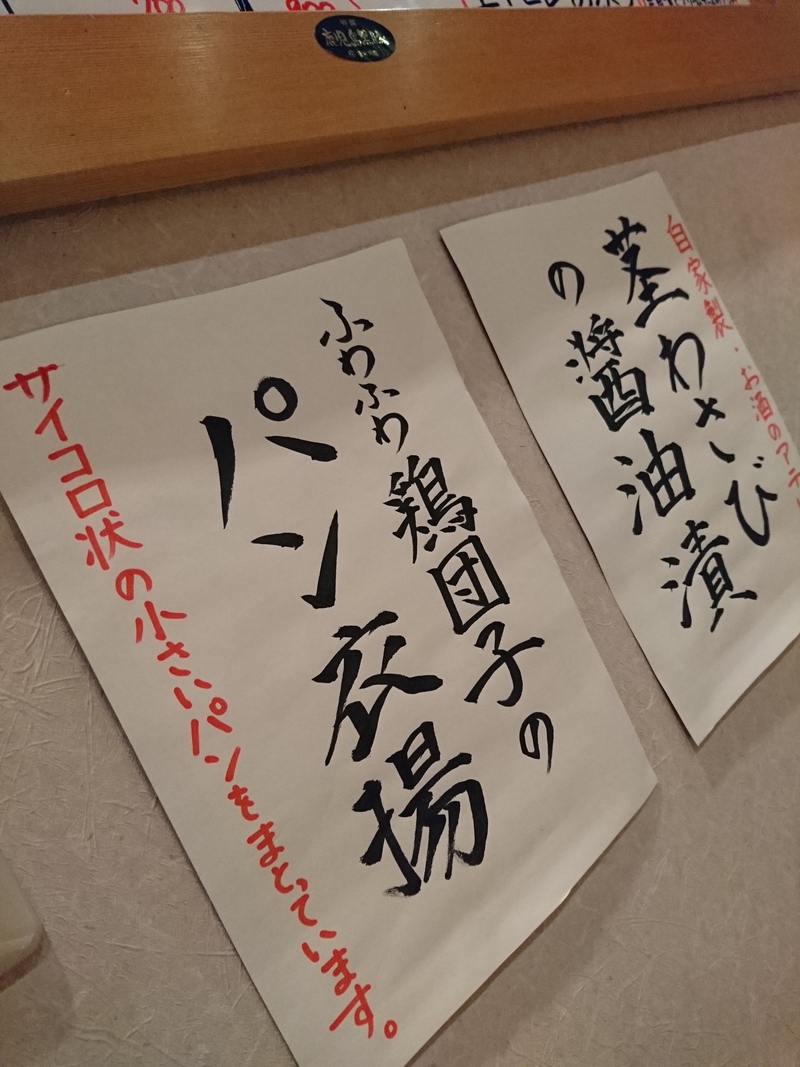 自家製・お酒のアテ
茎わさび
の醤油漬
ふわふわ鶏団子の
パン衣揚
サイコロ状の小さいパンをまとっています。